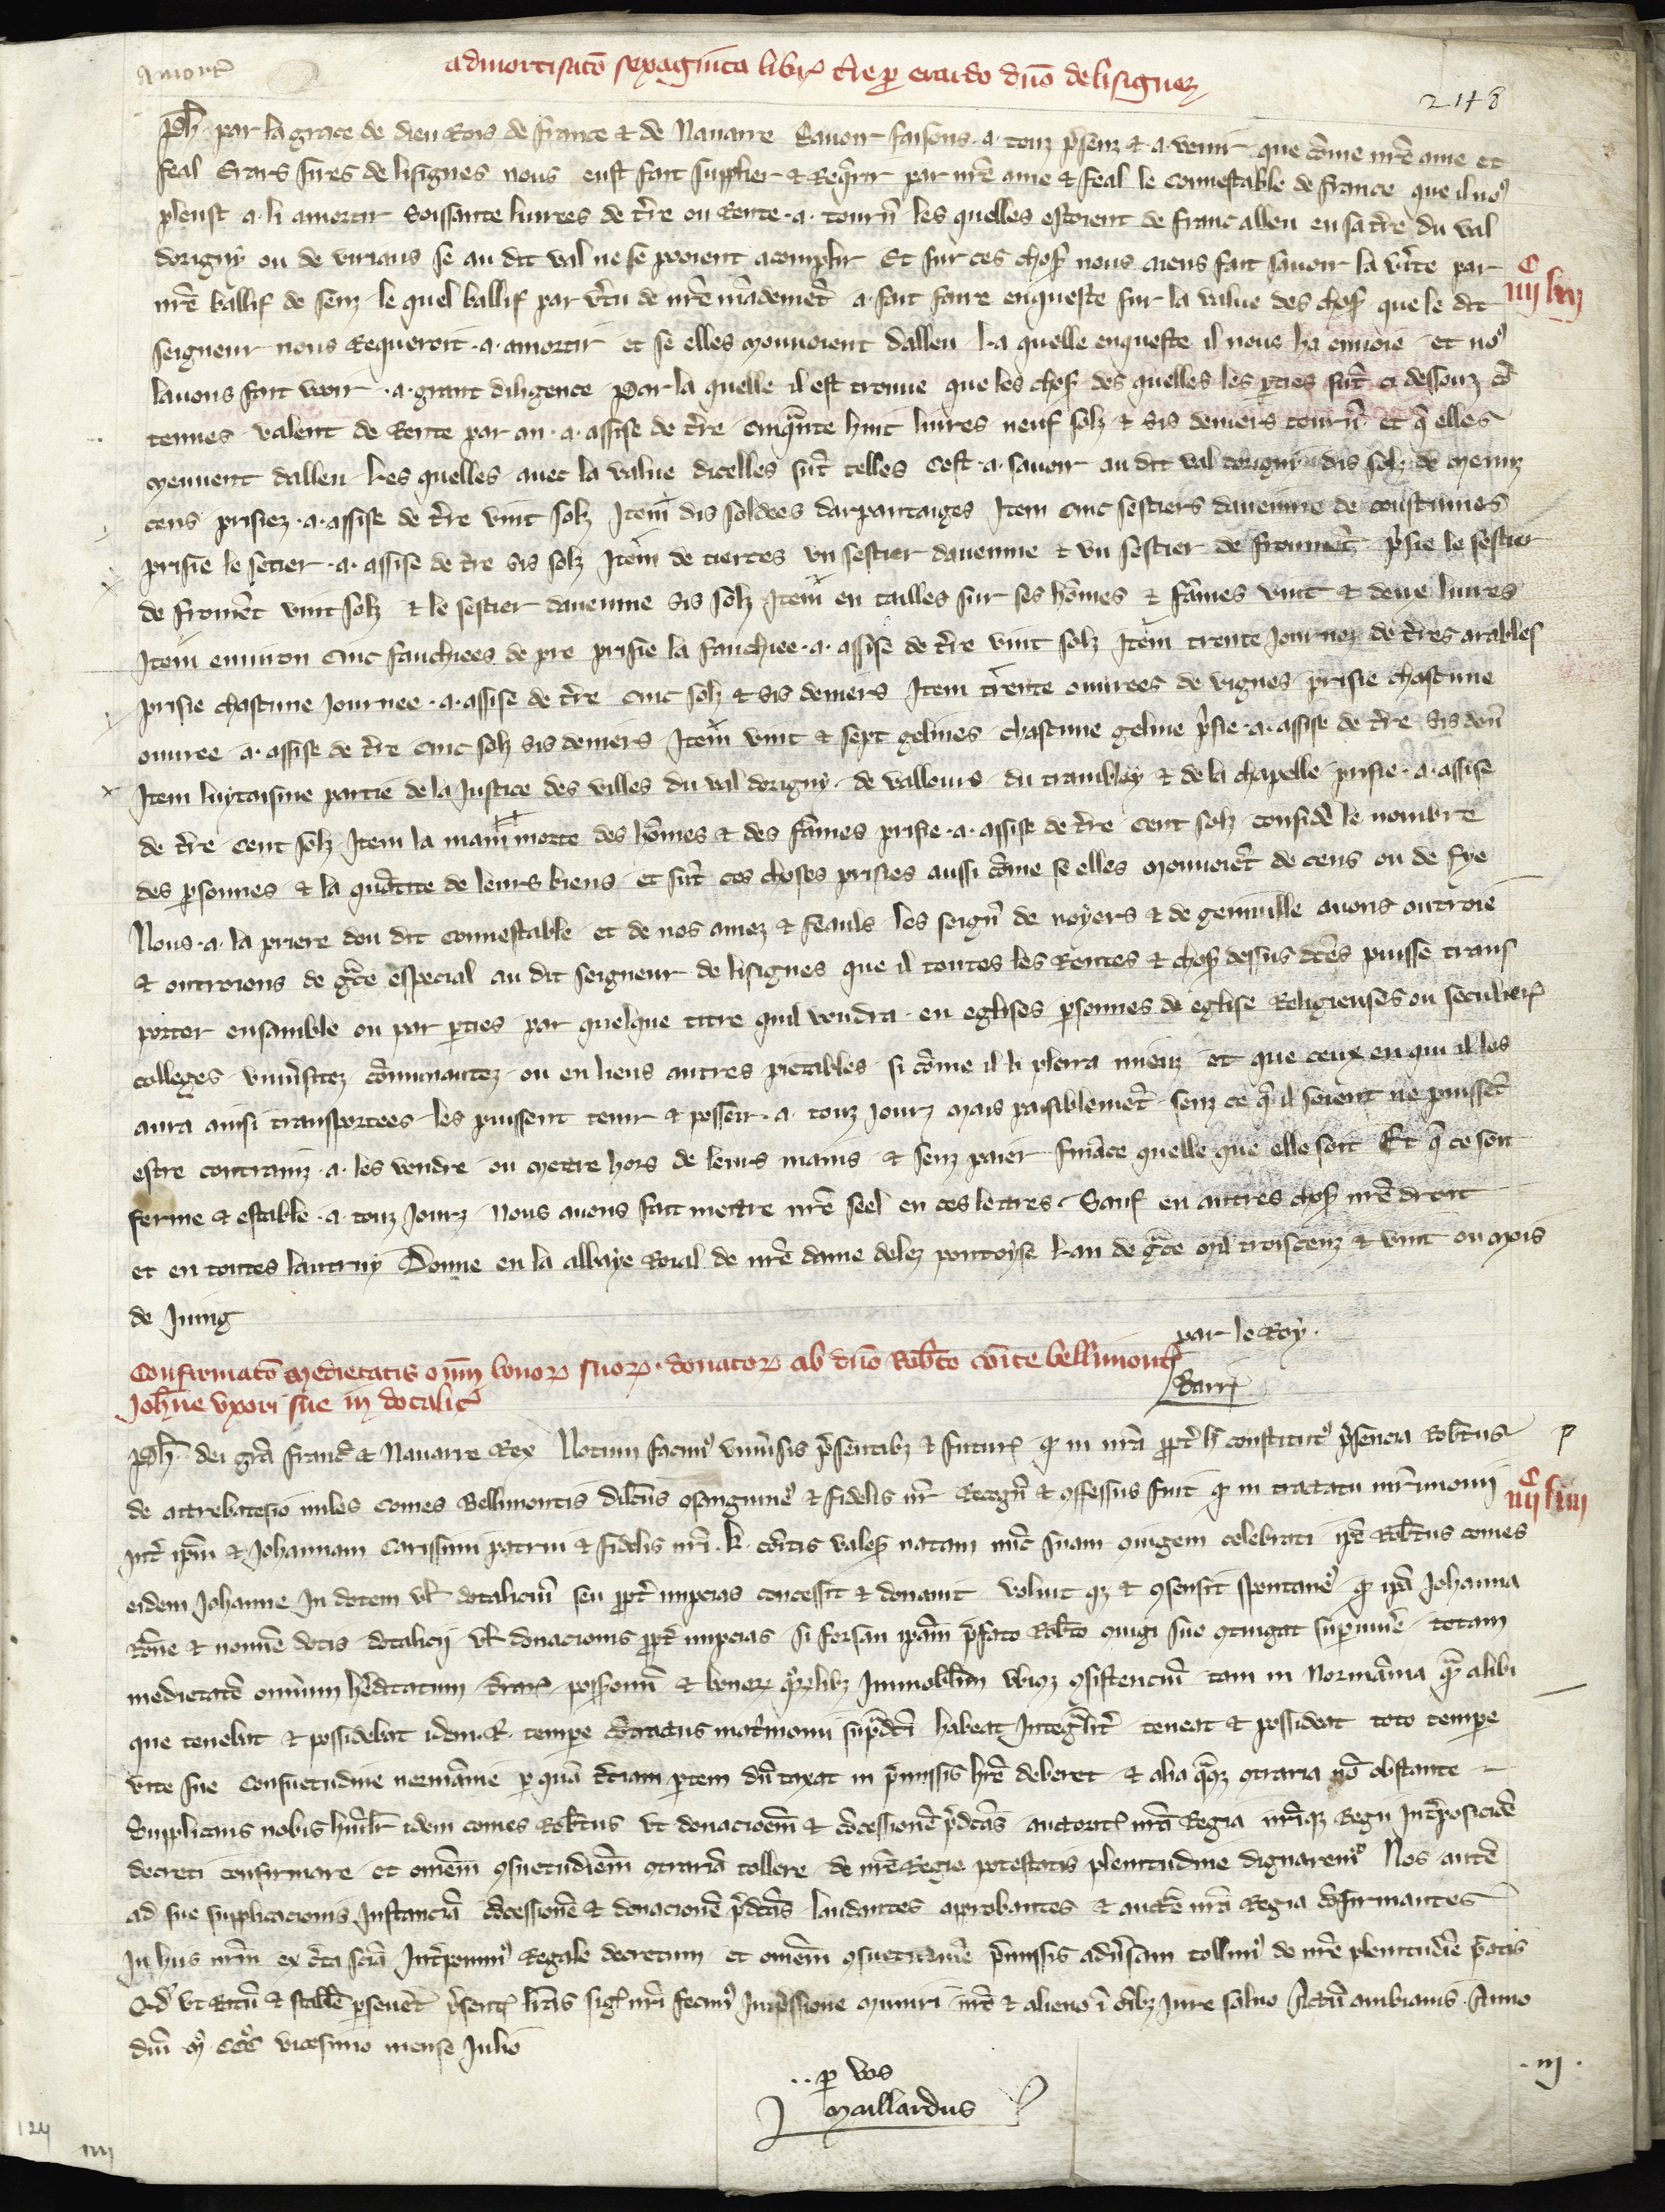 Amort̄
admortisatō sexaginta libr̄ t̄re ꝑ erardo dn̄o de lisignez
248
Ph̄. par la grace de dieu Rois de france et de Nauarre Sauoir faisons .a. touz p̄senz et a venir que cōme nr̄e ame et
feal Erars sires de lisignes nous eust fait supplier et Requerir par nr̄e ame et feal le Connestable de france que il no9
pleust .a. li amortir Soissante liurees de t̄re ou Rente .a. tourn̄ les quelles estoient de franc alleu en sa t̄re du val
dorigny ou de viriaus se au dit val ne se pooient acomplir Et sur ces choses nous aiens fait sauoir la v̄ite par
nr̄e ballif de senz le quel ballif par v̄tu de nr̄e mādemēt a fait faire enqueste sur la value des choses que le dit
C
iiij lxij
seigneur nous Requeroit .a. amortir et se elles mouuoient dalleu La quelle enqueste il nous ha enuoie et no9
lauons fait veoir .a. grant diligence Par la quelle il est trouue que les choses des quelles les pties sūt ci dessouz cō
tenues valent de Rente par an .a. assise de t̄re cinquāte huit liures neuf solz et sis deniers tourn̄ et q̄ elles
meuuent dalleu Les quelles auec la value dicelles sūt telles Cest .a. sauoir au dit val dorigni dis solz de menuz
cens prisiez .a. assise de t̄re vint solz Item dis soldees darpantaiges Item cinc sestiers dauenne de coustumes
prisie le setier .a. assise de t̄re sis solz Item de tierces vn sestier dauenne et vn sestier de fromēt p̄sie le sestier
de fromēt vint solz et le sestier dauenne sis solz Item en tailles sur ses hōmes et fāmes vint et deux liures
Item enuiron cinc fauchiees de pre prisie la fauchiee .a. assise de t̄re vint solz Item trente Journez de t̄res arables
prisie chascune Journee .a. assise de t̄re cinc solz et sis deniers Item trente ouurees de vignes prisie chascune
ouuree .a. assise de t̄re cinc solz sis deniers Item vint et sept gelines chascune geline p̄sie .a. assise de t̄re sis den̄
Item luytaisme partie de la Justice des villes du val dorigny de valleurs du trambloy et de la chapelle prisie .a. assise
de t̄re cent solz Item la main morte des hōmes et des fāmes prisie .a. assise de t̄re cent solz consider̄ le nombre
des psonnes et la quātite de leurs biens et sūt ces choses prisies aussi cōme se elles mouuoiēt de cens ou de fye
Nous .a. la priere dou dit Connestable et de nos amez et feauls les seign̄ de noyers et de geinuille auons outroie
et outroions de gr̄ce especial au dit seigneur de lisignes que il toutes les Rentes et choses dessus dc̄es puisse trans
porter ensamble ou par pties par quelque titre quil vendra en eglises psonnes de eglise Religieuses ou seculier̄
colleges vniūsitez cōmunautez ou en lieus autres pietables si cōme il li plera mieuz et que ceux en qui il les
aura ainsi transportees les puissent tenir et posseir .a. touz Jourz mais paisiblemēt senz ce q̄ il soient ne puissēt
estre contrainz .a. les vendre ou mettre hors de leurs mains et senz paier finance quelle que elle soit Et q̄ ce soit
ferme et estable .a. touz Jourz nous auons fait mettre nr̄e seel en ces lettres Sauf en autres choses nr̄e droit
et en toutes lautruy Donne en la abbaye Roial de nr̄e dame delez pontoyse Lan de gr̄ce mil troiscenz et vint ou mois
de Juing
par le Roy.
Barr̄
Confirmatō medietatis om̄m bonoꝝ suoꝝ donatoꝝ ab dn̄o Robt̄o cōite bellimont̄
Joh̄ne vxori sue in dotalic̄
Ph̄. dei gr̄a franc̄ et Nauarre Rex Notum facim9 vniūsis p̄sentibz et futur̄ ꝙ in nr̄a ꝓpt̄ h̄ constitut9 p̄sencia Robt̄us
P
de attrebatesio miles Comes Bellimontis dilc̄us ꝯsanguine9 et fidelis nr̄ Recogn̄ et ꝯfessus fuit ꝙ in tractatu mr̄imonij
C
iiij lxiij
int̄ ip̄m et Johannam Carissimi patrui et fidelis nr̄i .k. cōitis vales̄ natam nūc suam ꝯiugem celebrati ip̄e Robt̄us comes
eidem Johanne In dotem vl̄ dotaliciū seu ꝓpt̄ nupcias concessit et donauit voluit qz et ꝯsensit spontane9 ꝙ ip̄a Johanna
Rōne et nomine dotis dotalicij vl̄ donacionis ꝓpt̄ nupcias si forsan ip̄am p̄fato Robt̄o ꝯiugi suo ꝯtingat supuiuē totam
medietatē omnium hēditatum t̄rar̄ possessionū et bonoꝝ qūlibz Immobiliū vbicz ꝯsistenciū tam in Normānia q̄ alibi
que tenebat et possidebat idem .R. tempe cōtractus mat̄monii sup̄dc̄i habeat Integrālit̄ teneat et possideat toto tempe
vite sue Consuetudine normānie ꝑ quā t̄ciam ptem dūtaxat in p̄missis hr̄e deberet et alia q̄cz ꝯtraria nō obstante
Supplicans nobis hūil̄r idem comes Robt̄us vt donacioēm et cōcessionē p̄dc̄as auctorit̄ nr̄a Regia nr̄iqz Regii Int̄posicioē
decreti confirmare et om̄em ꝯsuetudinē ꝯtrariā tollere de nr̄e Regie potestatis plenitudine dignarem9 Nos autē
ad sue supplicacionis Instanciā cōcessionē et donacionē p̄dc̄as laudantes aprobantes et auct̄e nr̄a Regia cōfirmantes
In hiis nr̄m ex c̄ta sciā Int̄ponim9 Regale decretum et om̄em ꝯsuetudinē p̄missis adūsam tollim9 de nr̄e plenitudīe p̄atis
Qd̄ vt Ratū et stabile ꝑseuet p̄sent̄ litt̄is siḡ nr̄i fecim9 Inp̄ssione muniri nr̄o et alieno ī oībz Jure saluo Actū ambianis Anno
dn̄i M9 CCC9 vicesimo mense Julio
.. ꝑ vos
Maillardus
.iij.
124
iiij